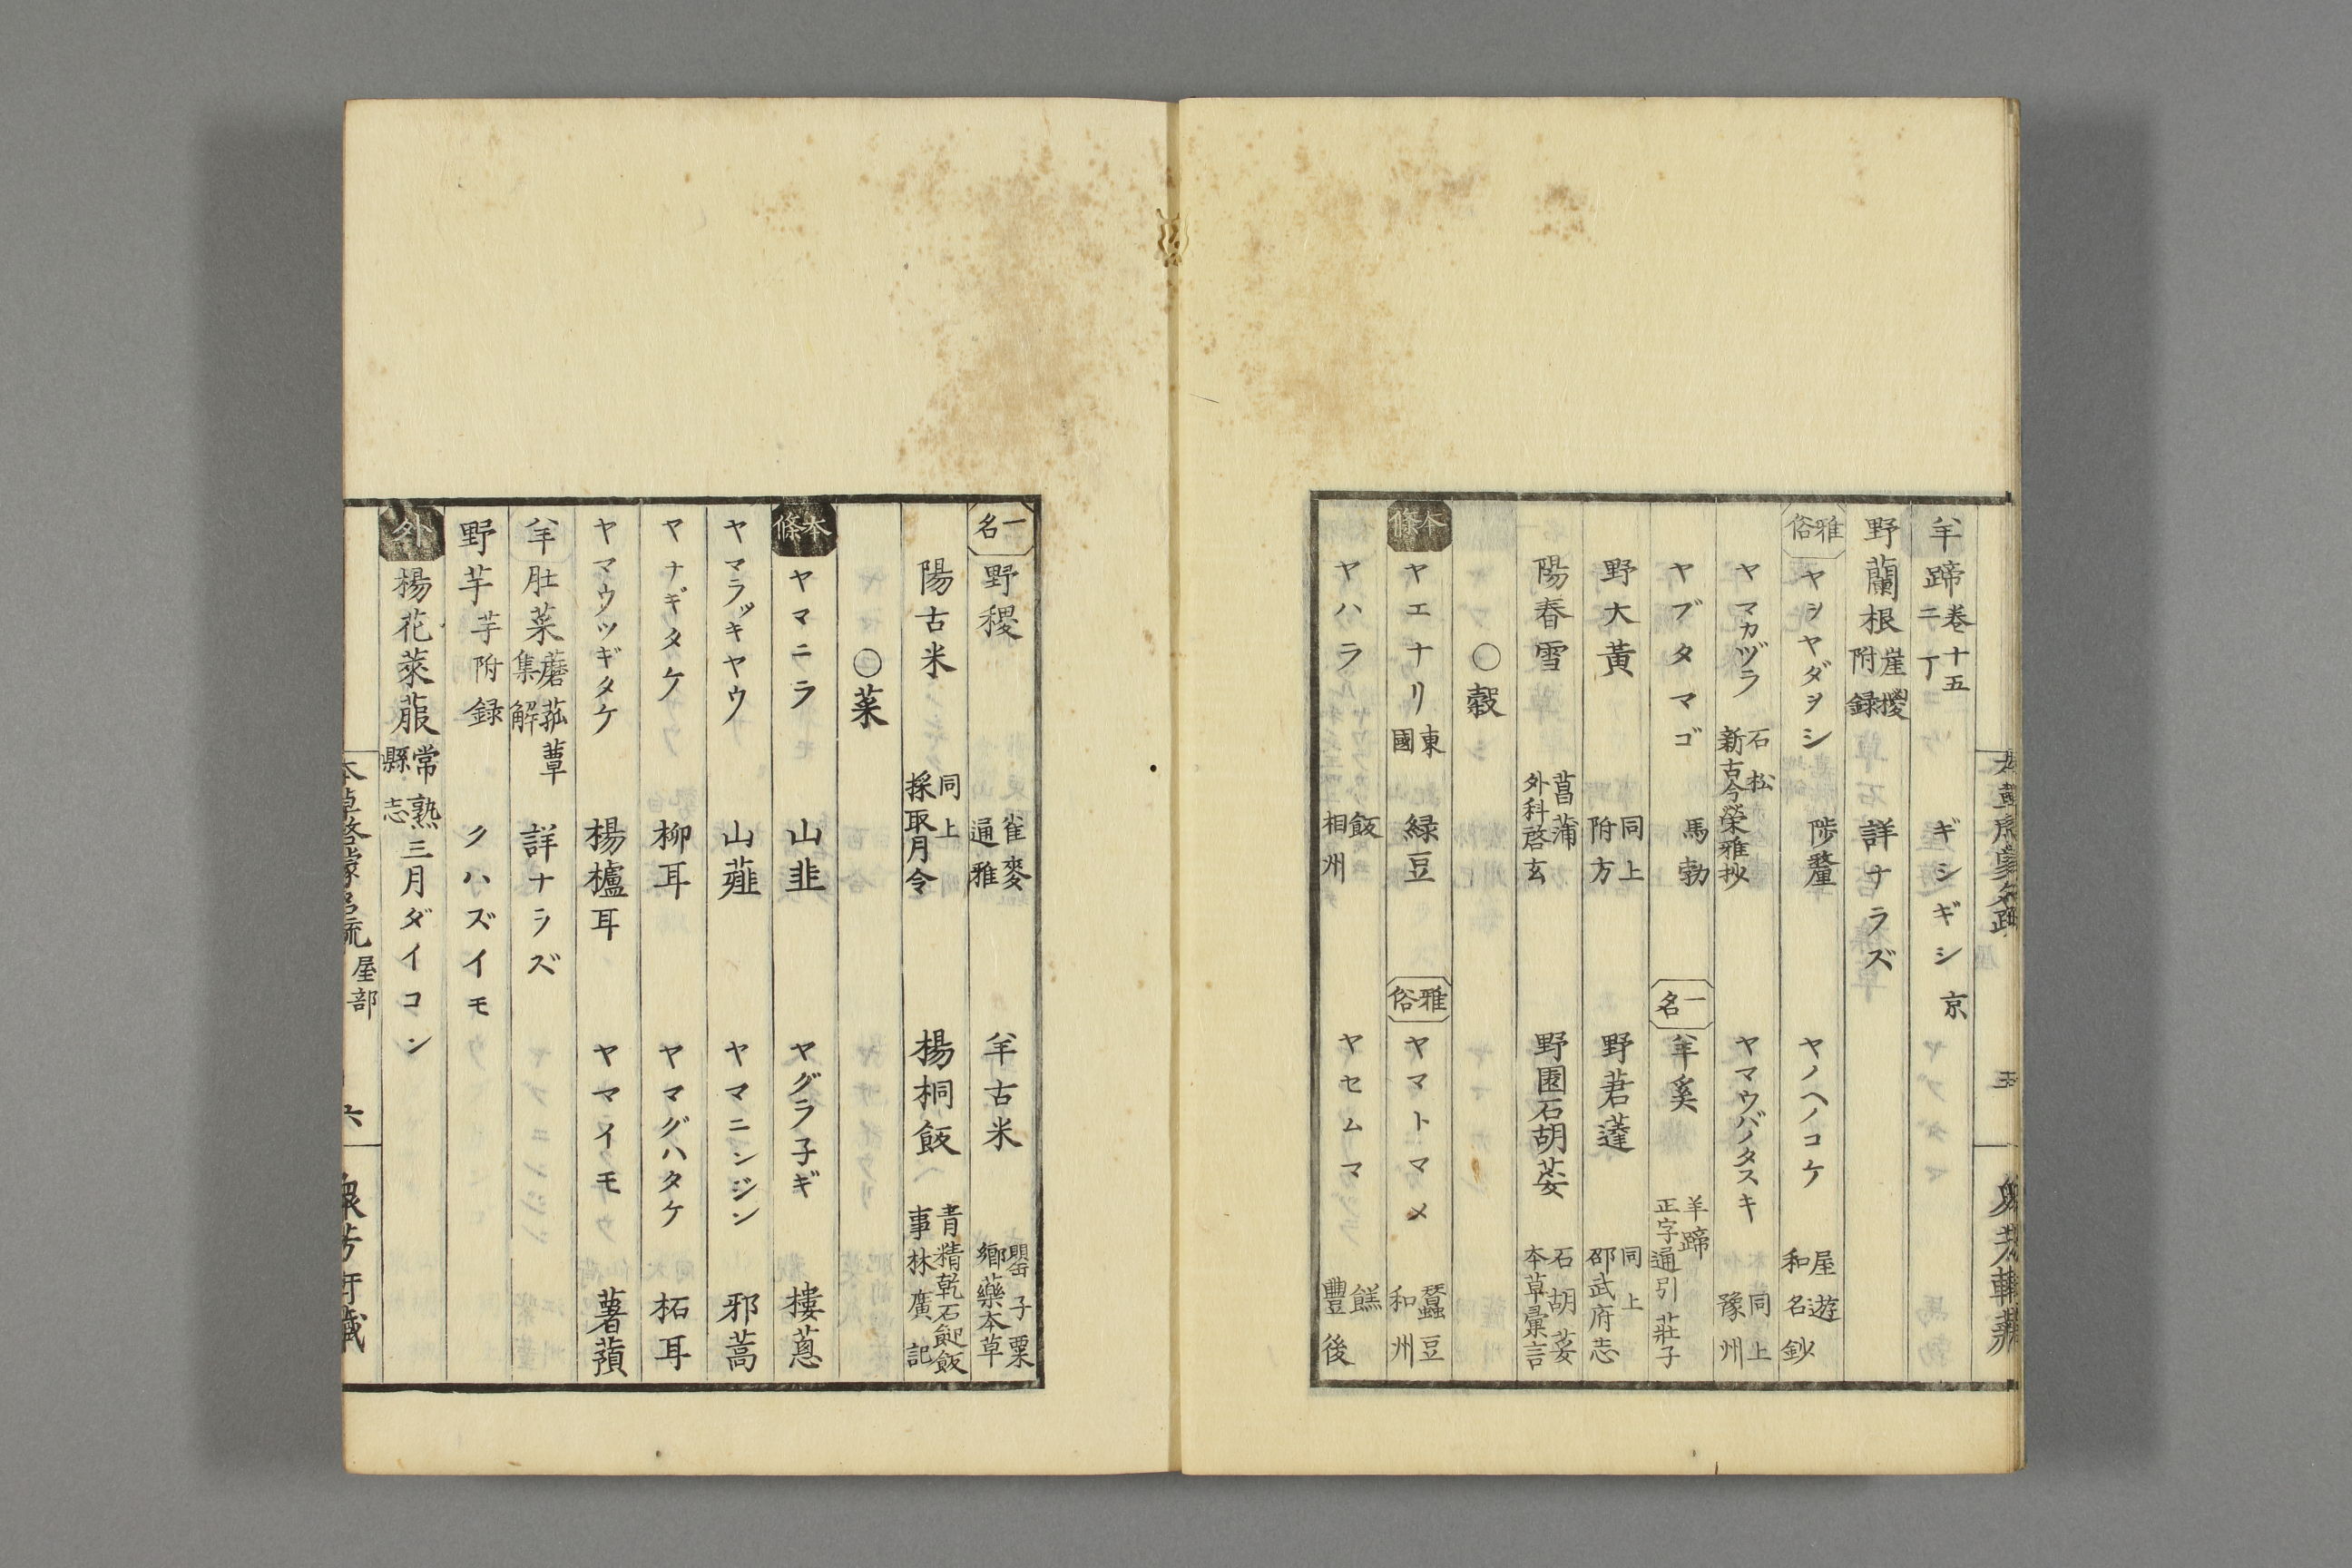 羊蹄 卷十五 二丁 ギシギシ 京
野蘭根 崖椶 附録 詳ナラズ
雅俗 ヤシヤダヲシ 陟釐 ヤノヘノコケ 屋遊 和名鈔
ヤマカヅラ 石松 新古今榮雅抄 ヤマウバノタスキ 同上 豫州
ヤブタマゴ 馬勃 一名 羊奚 羊蹄 正字通引莊子
野大黃 同上 附方 野莙薘 同上 邵武府志
陽春雪 菖蒲 外科啓玄 野園石胡荽 石胡荽 本草彙言
○穀
本條 ヤエナリ 東國 緑豆 雅俗 ヤマトマメ 蠶豆 和州
ヤハラ 飯 相州 ヤセムマ 餻 豐後
一名 野稷 雀麥 通雅 羊古米 罌子粟 鄉藥本草
陽古米 同上 採取月令 楊桐飯 青精乾石䭀飯 事林廣記
○菜
本條 ヤマニラ 山韭 ヤグラ子ギ 樓葱
ヤマラッキヤウ 山薤 ヤマニンジン 邪蒿
ヤナギタケ 柳耳 ヤマグハタケ 柘耳
ヤマウツギタケ 楊櫨耳 ヤマイモ 薯蕷
羊肚菜 蘑菰蕈 集解 詳ナラズ
野芋 芋附録 クハズイモ
外 楊花萊菔 常熟縣志 三月ダイコン
本草啓蒙名疏 屋部 六 衆芳軒藏